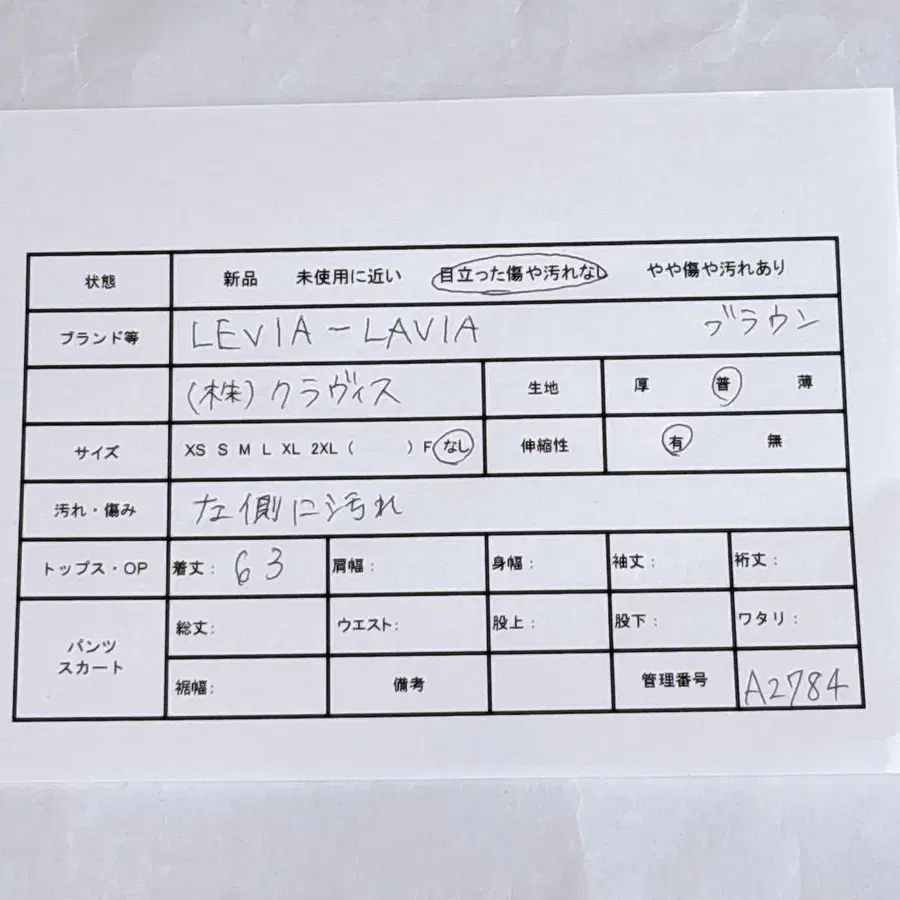 状態 新品 未使用に近い 目立った傷や汚れなし やや傷や汚れあり
ブランド等 LEVIA-LAVIA ブラウン
(株)クラヴィス 生地 厚 普 薄
サイズ XS S M L XL 2XL ( ) F なし 伸縮性 有 無
汚れ・傷み 左側に汚れ
トップス・OP 着丈: 63 肩幅: 身幅: 袖丈: 裄丈:
パンツ スカート 総丈: ウエスト: 股上: 股下: ワタリ:
裾幅: 備考 管理番号 A2784